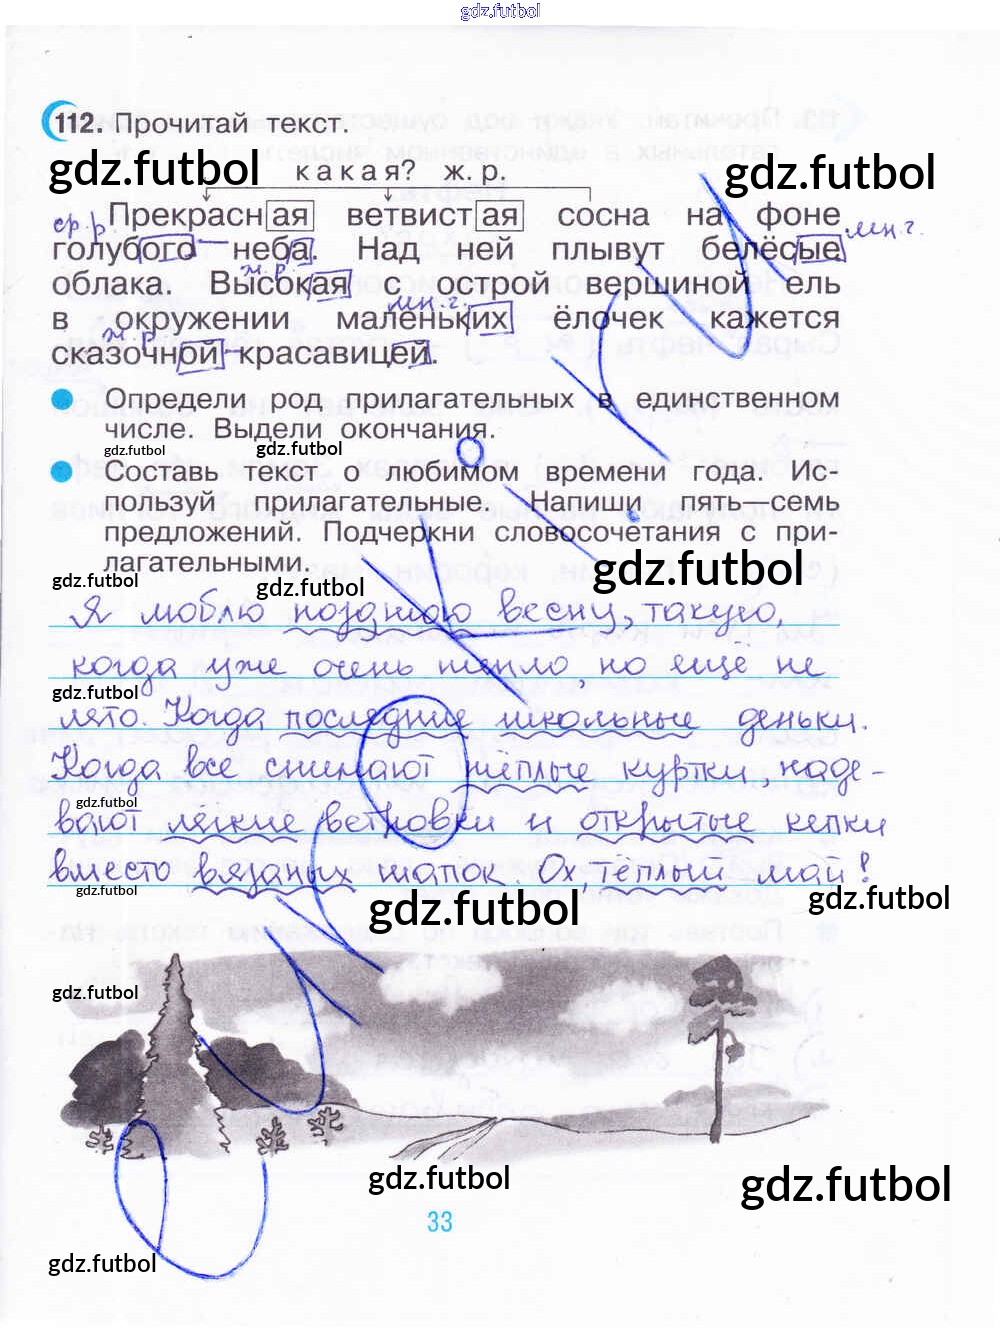 gdz.futbol
112. Прочитай текст.
gdz.futbol
gdz.futbol
какая? ж. р.
Прекрасная ветвистая сосна на фоне
ср.р.
мн.г.
голубого неба. Над ней плывут белёсые
ж.р.
облака. Высокая с острой вершиной ель
мн.г.
в окружении маленьких ёлочек кажется
ж.р.
сказочной красавицей.
Определи род прилагательных в единственном
числе. Выдели окончания.
gdz.futbol
gdz.futbol
Составь текст о любимом времени года. Ис-
пользуй прилагательные. Напиши пять—семь
предложений. Подчеркни словосочетания с при-
лагательными.
gdz.futbol
gdz.futbol
gdz.futbol
Я люблю позднюю весну, такую,
когда уже очень тепло, но еще не
gdz.futbol
лето. Когда последние школьные деньки.
Когда все снимают теплые куртки, наде-
gdz.futbol
вают легкие ветровки и открытые кепки
вместо вязаных шапок. Ох, тёплый май!
gdz.futbol
gdz.futbol
gdz.futbol
gdz.futbol
gdz.futbol
gdz.futbol
33
gdz.futbol